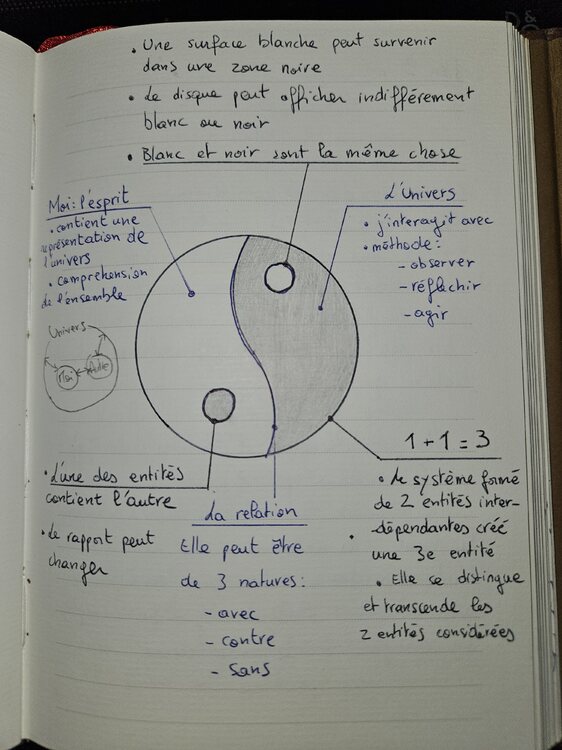 • Une surface blanche peut survenir
dans une zone noire
• Le disque peut afficher indifférement
blanc ou noir
• Blanc et noir sont la même chose
Moi: l'esprit
• contient une
représentation de
l'univers
• compréhension
de l'ensemble
L'Univers
• j'interagit avec
• méthode:
- observer
- réfléchir
- agir
Univers
Moi
Autre
1 + 1 = 3
• L'une des entités
contient l'autre
• Le rapport peut
changer
La relation
Elle peut être
de 3 natures:
- avec
- contre
- sans
• Le système formé
de 2 entités inter-
dépendantes créé
une 3e entité
• Elle se distingue
et transcende les
2 entités considérées